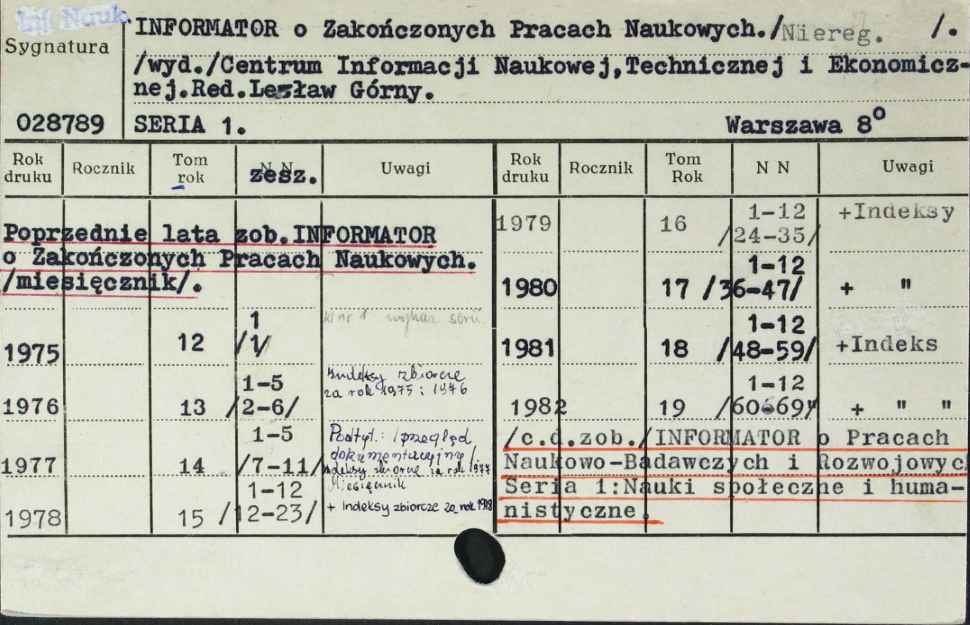 Lit Nauk.
Sygnatura
INFORMATOR o Zakończonych Pracach Naukowych./Niereg. /.
/wyd./Centrum Informacji Naukowej,Technicznej i Ekonomicz-
nej.Red.Lesław Górny.
028789 SERIA 1. Warszawa 8°
Rok druku Rocznik Tom rok zesz. Uwagi
Poprzednie lata zob.INFORMATOR
o Zakończonych Pracach Naukowych.
/miesięcznik/.
1975 12 1 /1/
1976 13 1-5 /2-6/ Indeksy zbiorcze za rok 1975 i 1976
1977 14 1-5 /7-11/ Podtyt.: /przegląd dokumentacyjny/ Indeksy zbiorcze za rok 1977
Miesięcznik
1978 15 1-12 /12-23/ + Indeksy zbiorcze za rok 1978
Rok druku Rocznik Tom Rok N N Uwagi
1979 16 1-12 /24-35/ +Indeksy
1980 17 1-12 /36-47/ + "
1981 18 1-12 /48-59/ +Indeks
1982 19 1-12 + " "
/c.d.zob./INFORMATOR o Pracach
Naukowo-Badawczych i Rozwojowyc
Seria 1:Nauki społeczne i huma-
nistyczne.